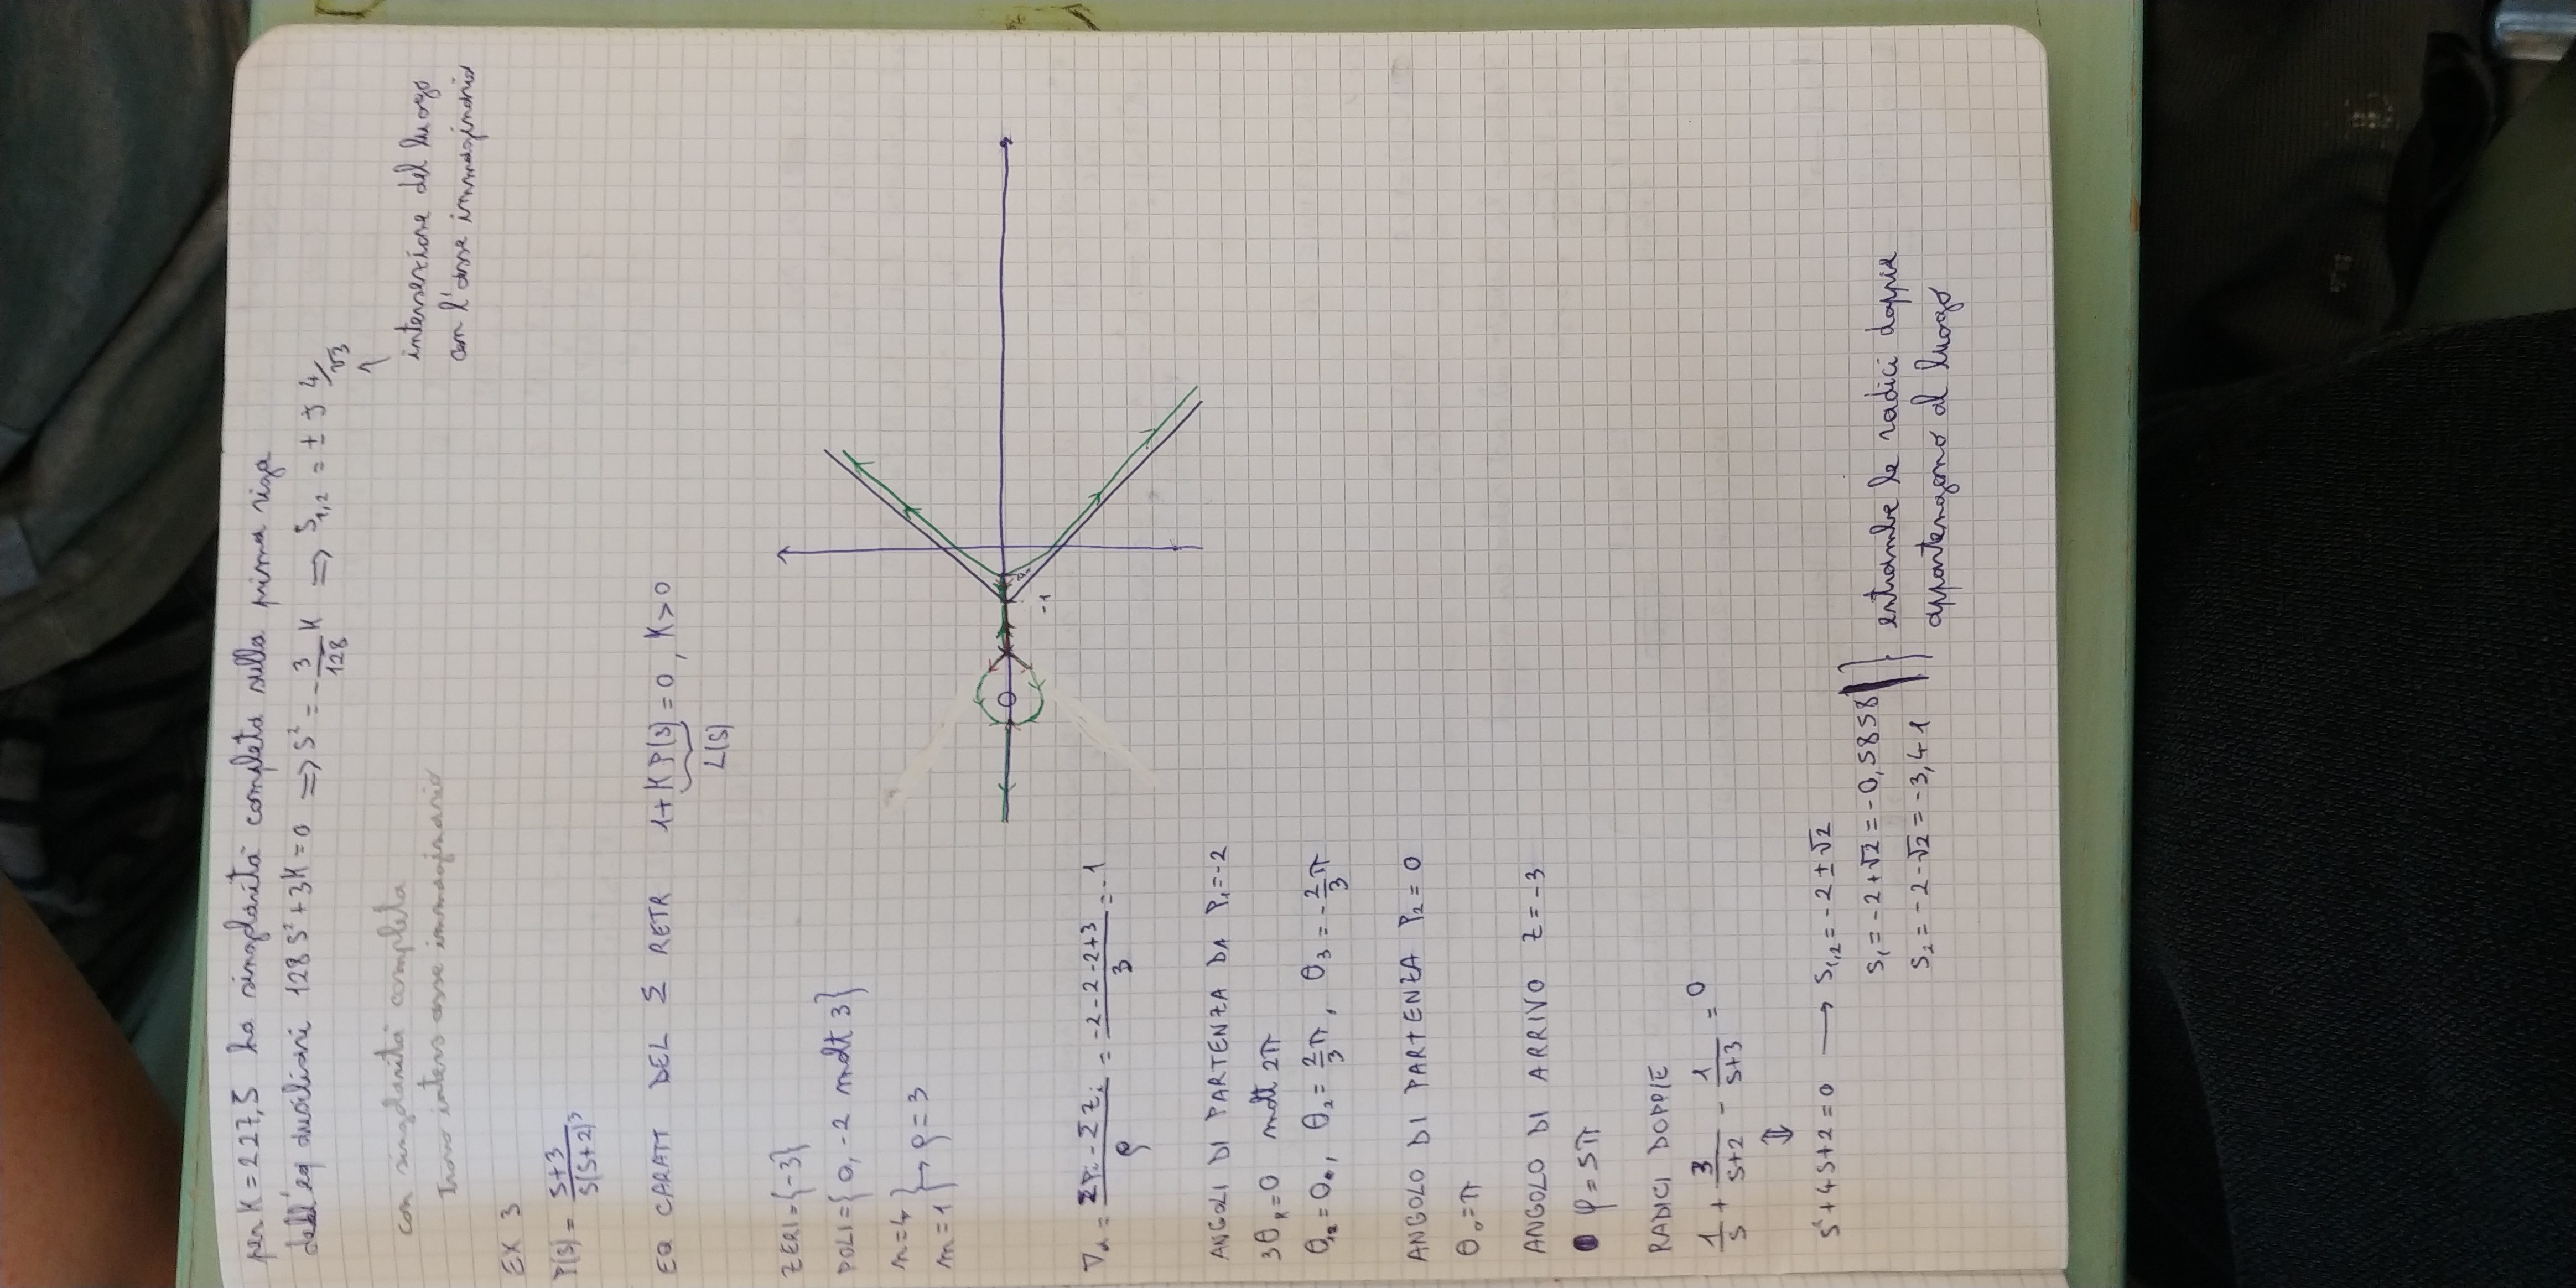 per K = 227,5 ho singolarità completa sulla prima riga
dall'eq ausiliari 128 s² + 3K = 0 => s² = -3/128 K => s₁,₂ = ± j 4/√3
↑
intersezione del luogo
con l'asse immaginario
con singolarità completa
trovo inters asse immaginario
EX 3
P(s) = (s+3)/(s(s+2)³)
EQ CARATT DEL Σ RETR 1 + K P(s) = 0, K > 0
L(s)
ZERI = {-3}
POLI = {0, -2 molt 3}
n = 4
m = 1
} → ρ = 3
-1
σₐ = (Σpᵢ - Σzᵢ)/ρ = (-2-2-2+3)/3 = -1
ANGOLI DI PARTENZA DA P₁ = -2
3θₖ = 0 molt 2π
θ₁ = 0, θ₂ = 2/3 π, θ₃ = -2/3 π
ANGOLO DI PARTENZA P₂ = 0
θ₀ = π
ANGOLO DI ARRIVO Z = -3
φ = 5π
RADICI DOPPIE
1/s + 3/(s+2) - 1/(s+3) = 0
⇕
s² + 4s + 2 = 0 → s₁,₂ = -2 ± √2
s₁ = -2 + √2 = -0,5858
s₂ = -2 - √2 = -3,41
} entrambe le radici doppie
appartengono al luogo